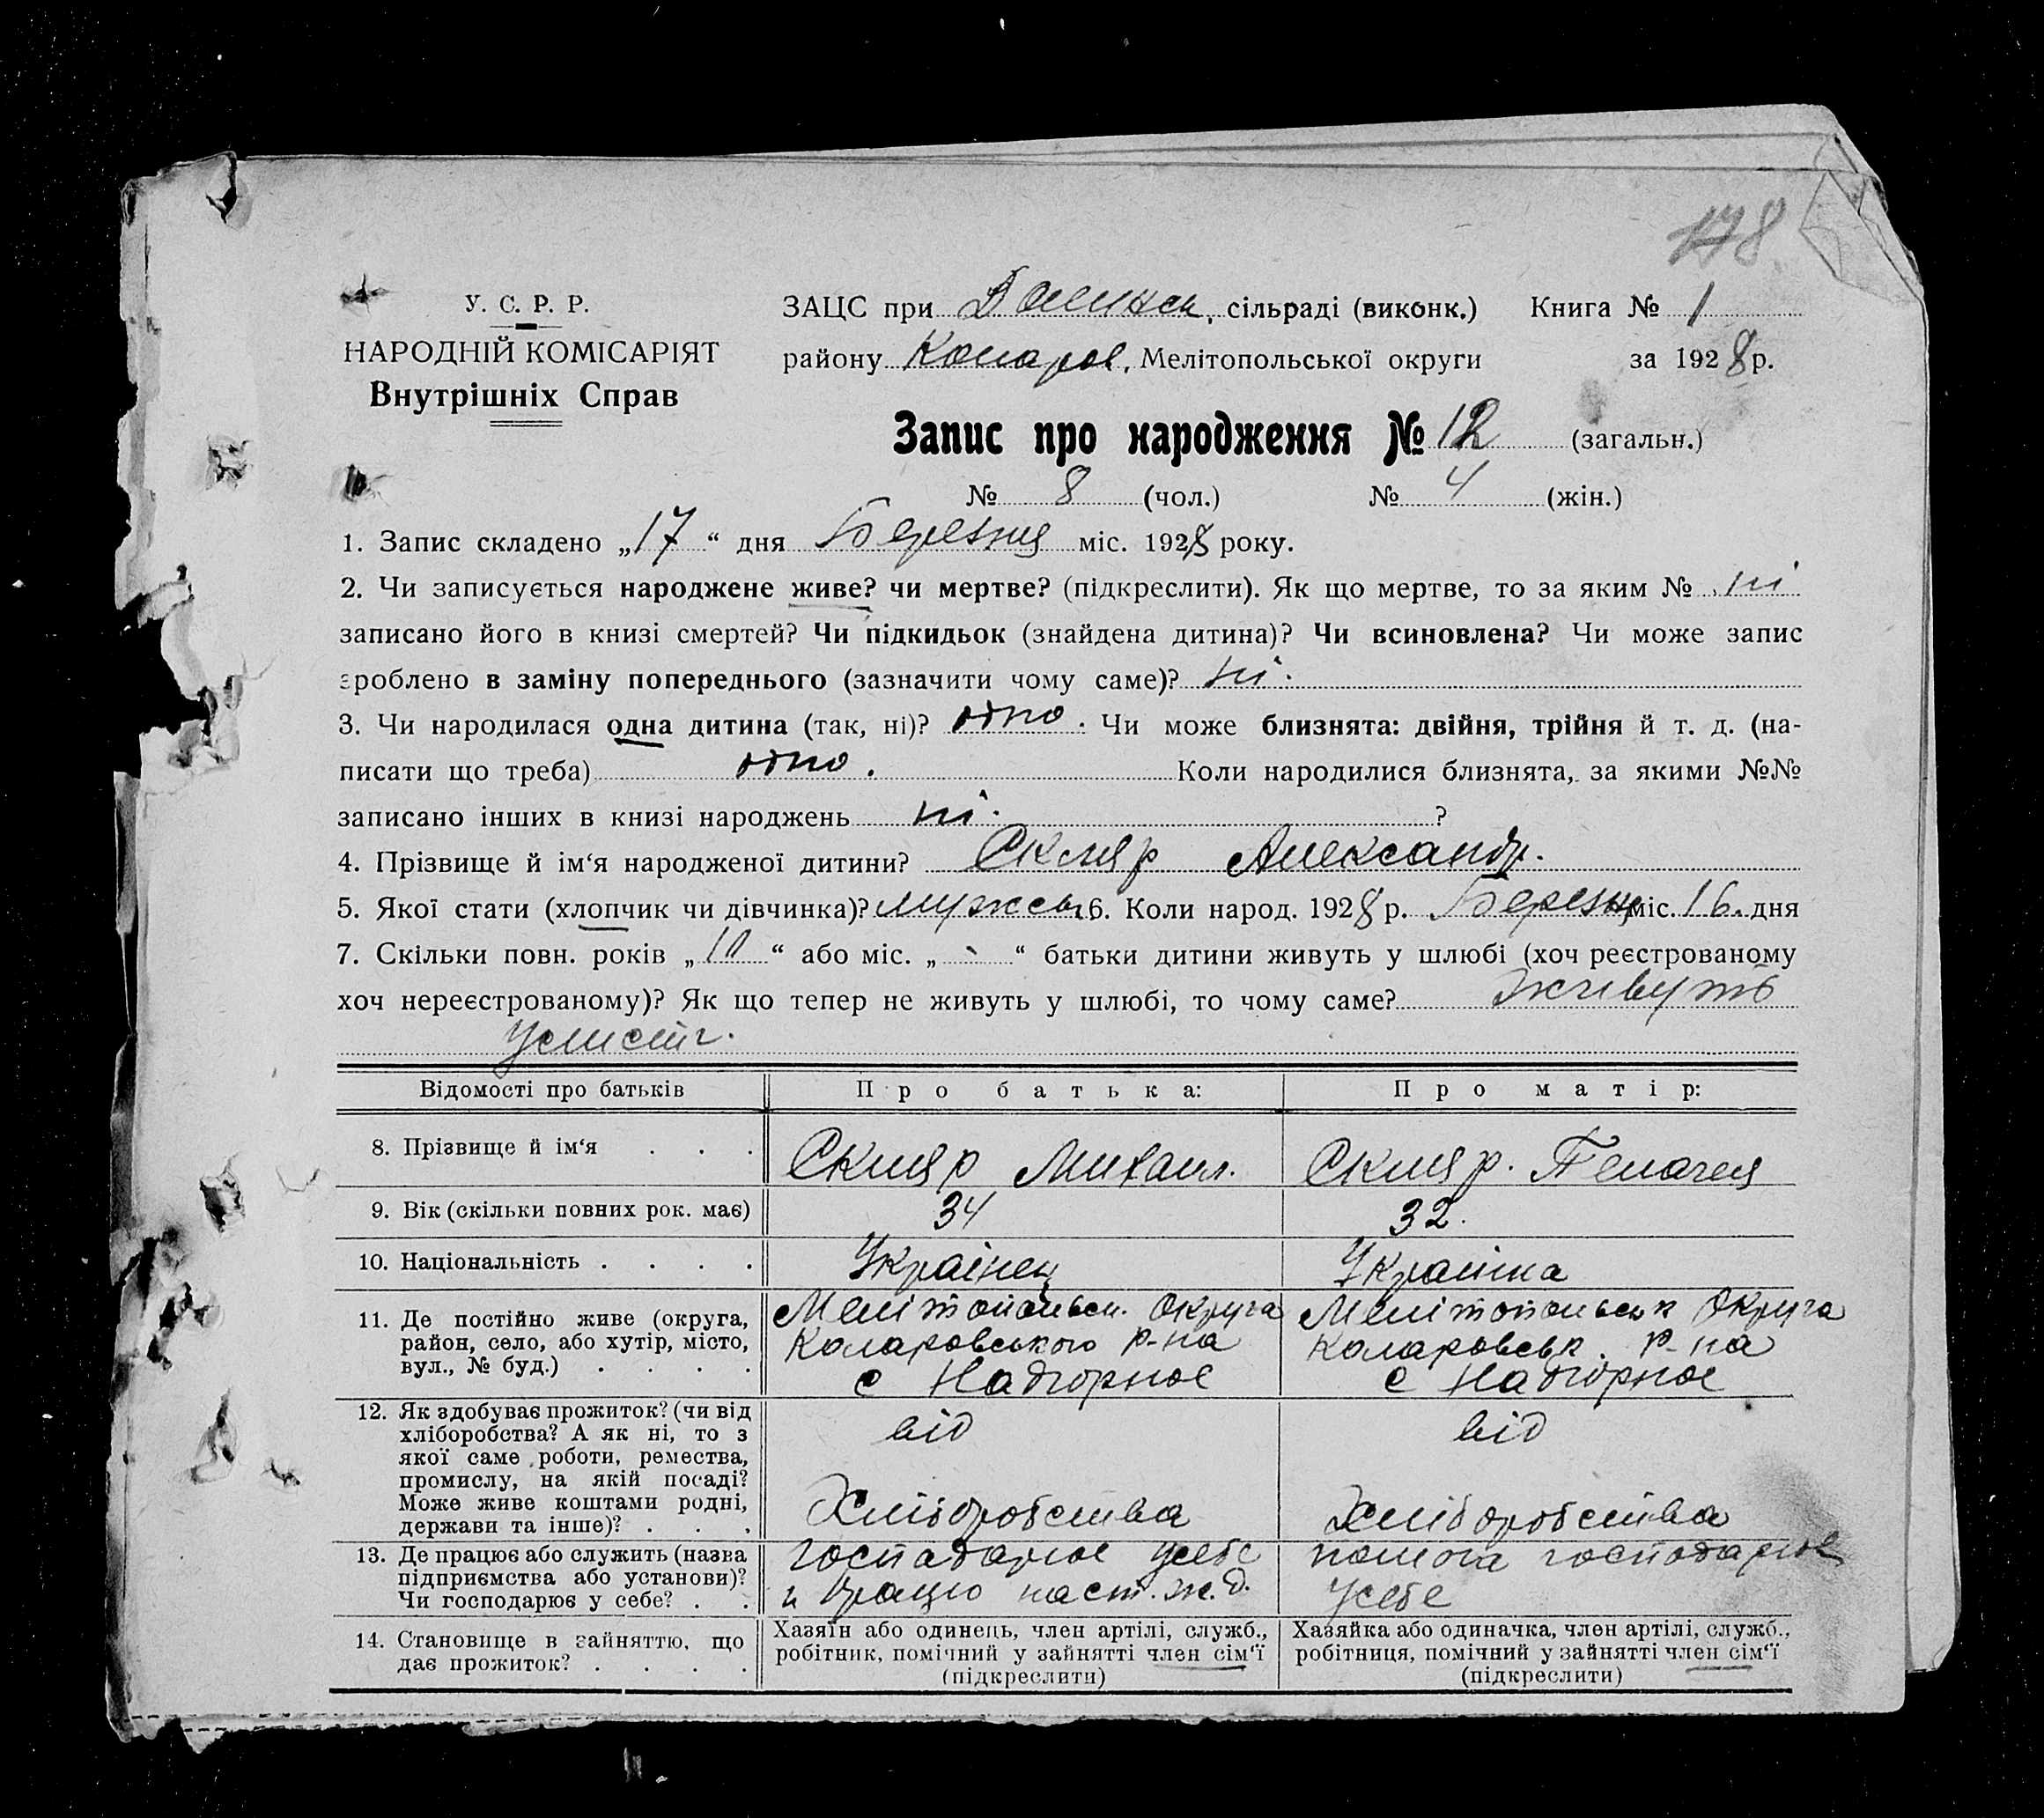 178
У. С. Р. Р.
НАРОДНІЙ КОМІСАРІЯТ
Внутрішніх Справ
ЗАЦС при сільраді (виконк.) Книга № 1
району Коларов, Мелітопольської округи за 1928 р.
Запис про народження № 12 (загальн.)
№ 8 (чол.) № 4 (жін.)
1. Запис складено „17“ дня Березня міс. 1928 року.
2. Чи записується народжене живе? чи мертве? (підкреслити). Як що мертве, то за яким № ні
записано його в книзі смертей? Чи підкидьок (знайдена дитина)? Чи всиновлена? Чи може запис
зроблено в заміну попереднього (зазначити чому саме)? ні.
3. Чи народилася одна дитина (так, ні)? одно. Чи може близнята: двійня, трійня й т. д. (на-
писати що треба) одно. Коли народилися близнята, за якими №№
записано інших в книзі народжень ні. ?
4. Прізвище й ім‘я народженої дитини? Скляр Александр.
5. Якої стати (хлопчик чи дівчинка)? мужськ. 6. Коли народ. 1928 р. Березня міс. 16. дня
7. Скільки повн. років „10“ або міс. „-“ батьки дитини живуть у шлюбі (хоч реєстрованому
хоч нереєстрованому)? Як що тепер не живуть у шлюбі, то чому саме? живуть
Відомості про батьків Про батька: Про матір:
8. Прізвище й ім‘я . . . Скляр Михаил. Скляр. Пелагея
9. Вік (скільки повних рок. має) 34 32.
10. Національність . . . . Українец Украінка
11. Де постійно живе (округа, Мелітопольськ. Округа Мелітопольськ Округа
район, село, або хутір, місто, Коларовського р-на Коларовськ. р-на
вул., № буд.) . . . . с Надгорное с Надгорное
12. Як здобуває прожиток? (чи від від від
хліборобства? А як ні, то з
якої саме роботи, ремества,
промислу, на якій посаді?
Може живе коштами родні, Хліборобства Хліборобства
держави та інше)? . . .
13. Де працює або служить (назва господарює усебе помога господарює
підприємства або установи)? и працю наст. ж.д. усебе
Чи господарює у себе? . .
14. Становище в зайняттю, що Хазяїн або одинець, член артілі, служб., Хазяйка або одиначка, член артілі, служб.,
дає прожиток? . . . . робітник, помічний у зайнятті член сім‘ї робітниця, помічний у зайнятті член сім‘ї
(підкреслити) (підкреслити)